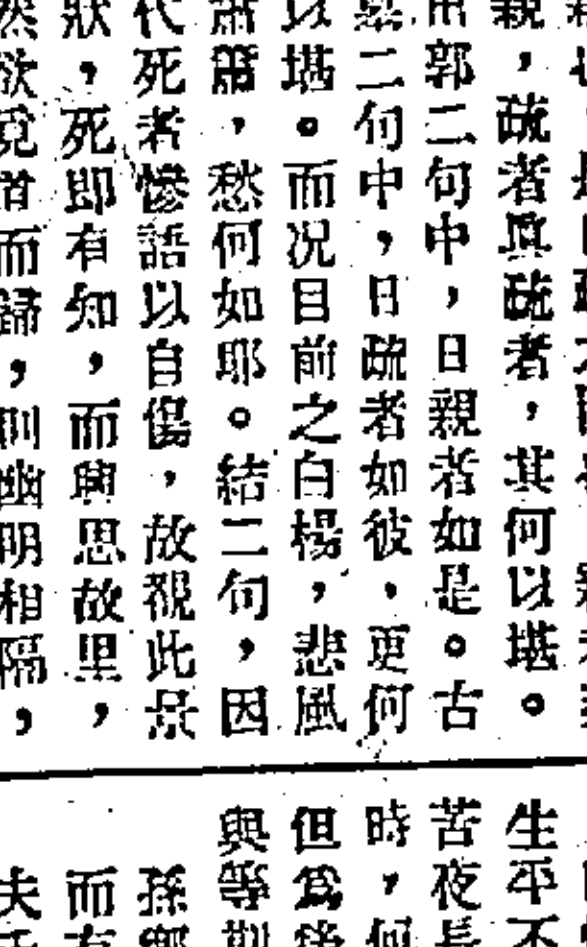 親，疏者真疏者，其何以堪。
郭二句中，日親者如是。古
墓二句中，日疏者如彼，更何
以堪。而况目前之白楊，悲風
肅肅，愁何如耶。結二句，因
代死者慘語以自傷，故覩此景
狀，死即有知，而興思故里，
然欲竟首而歸，則幽明相隔，
生平不
苦夜長
時，何
但為後
與等期
孫鄉
而有
夫